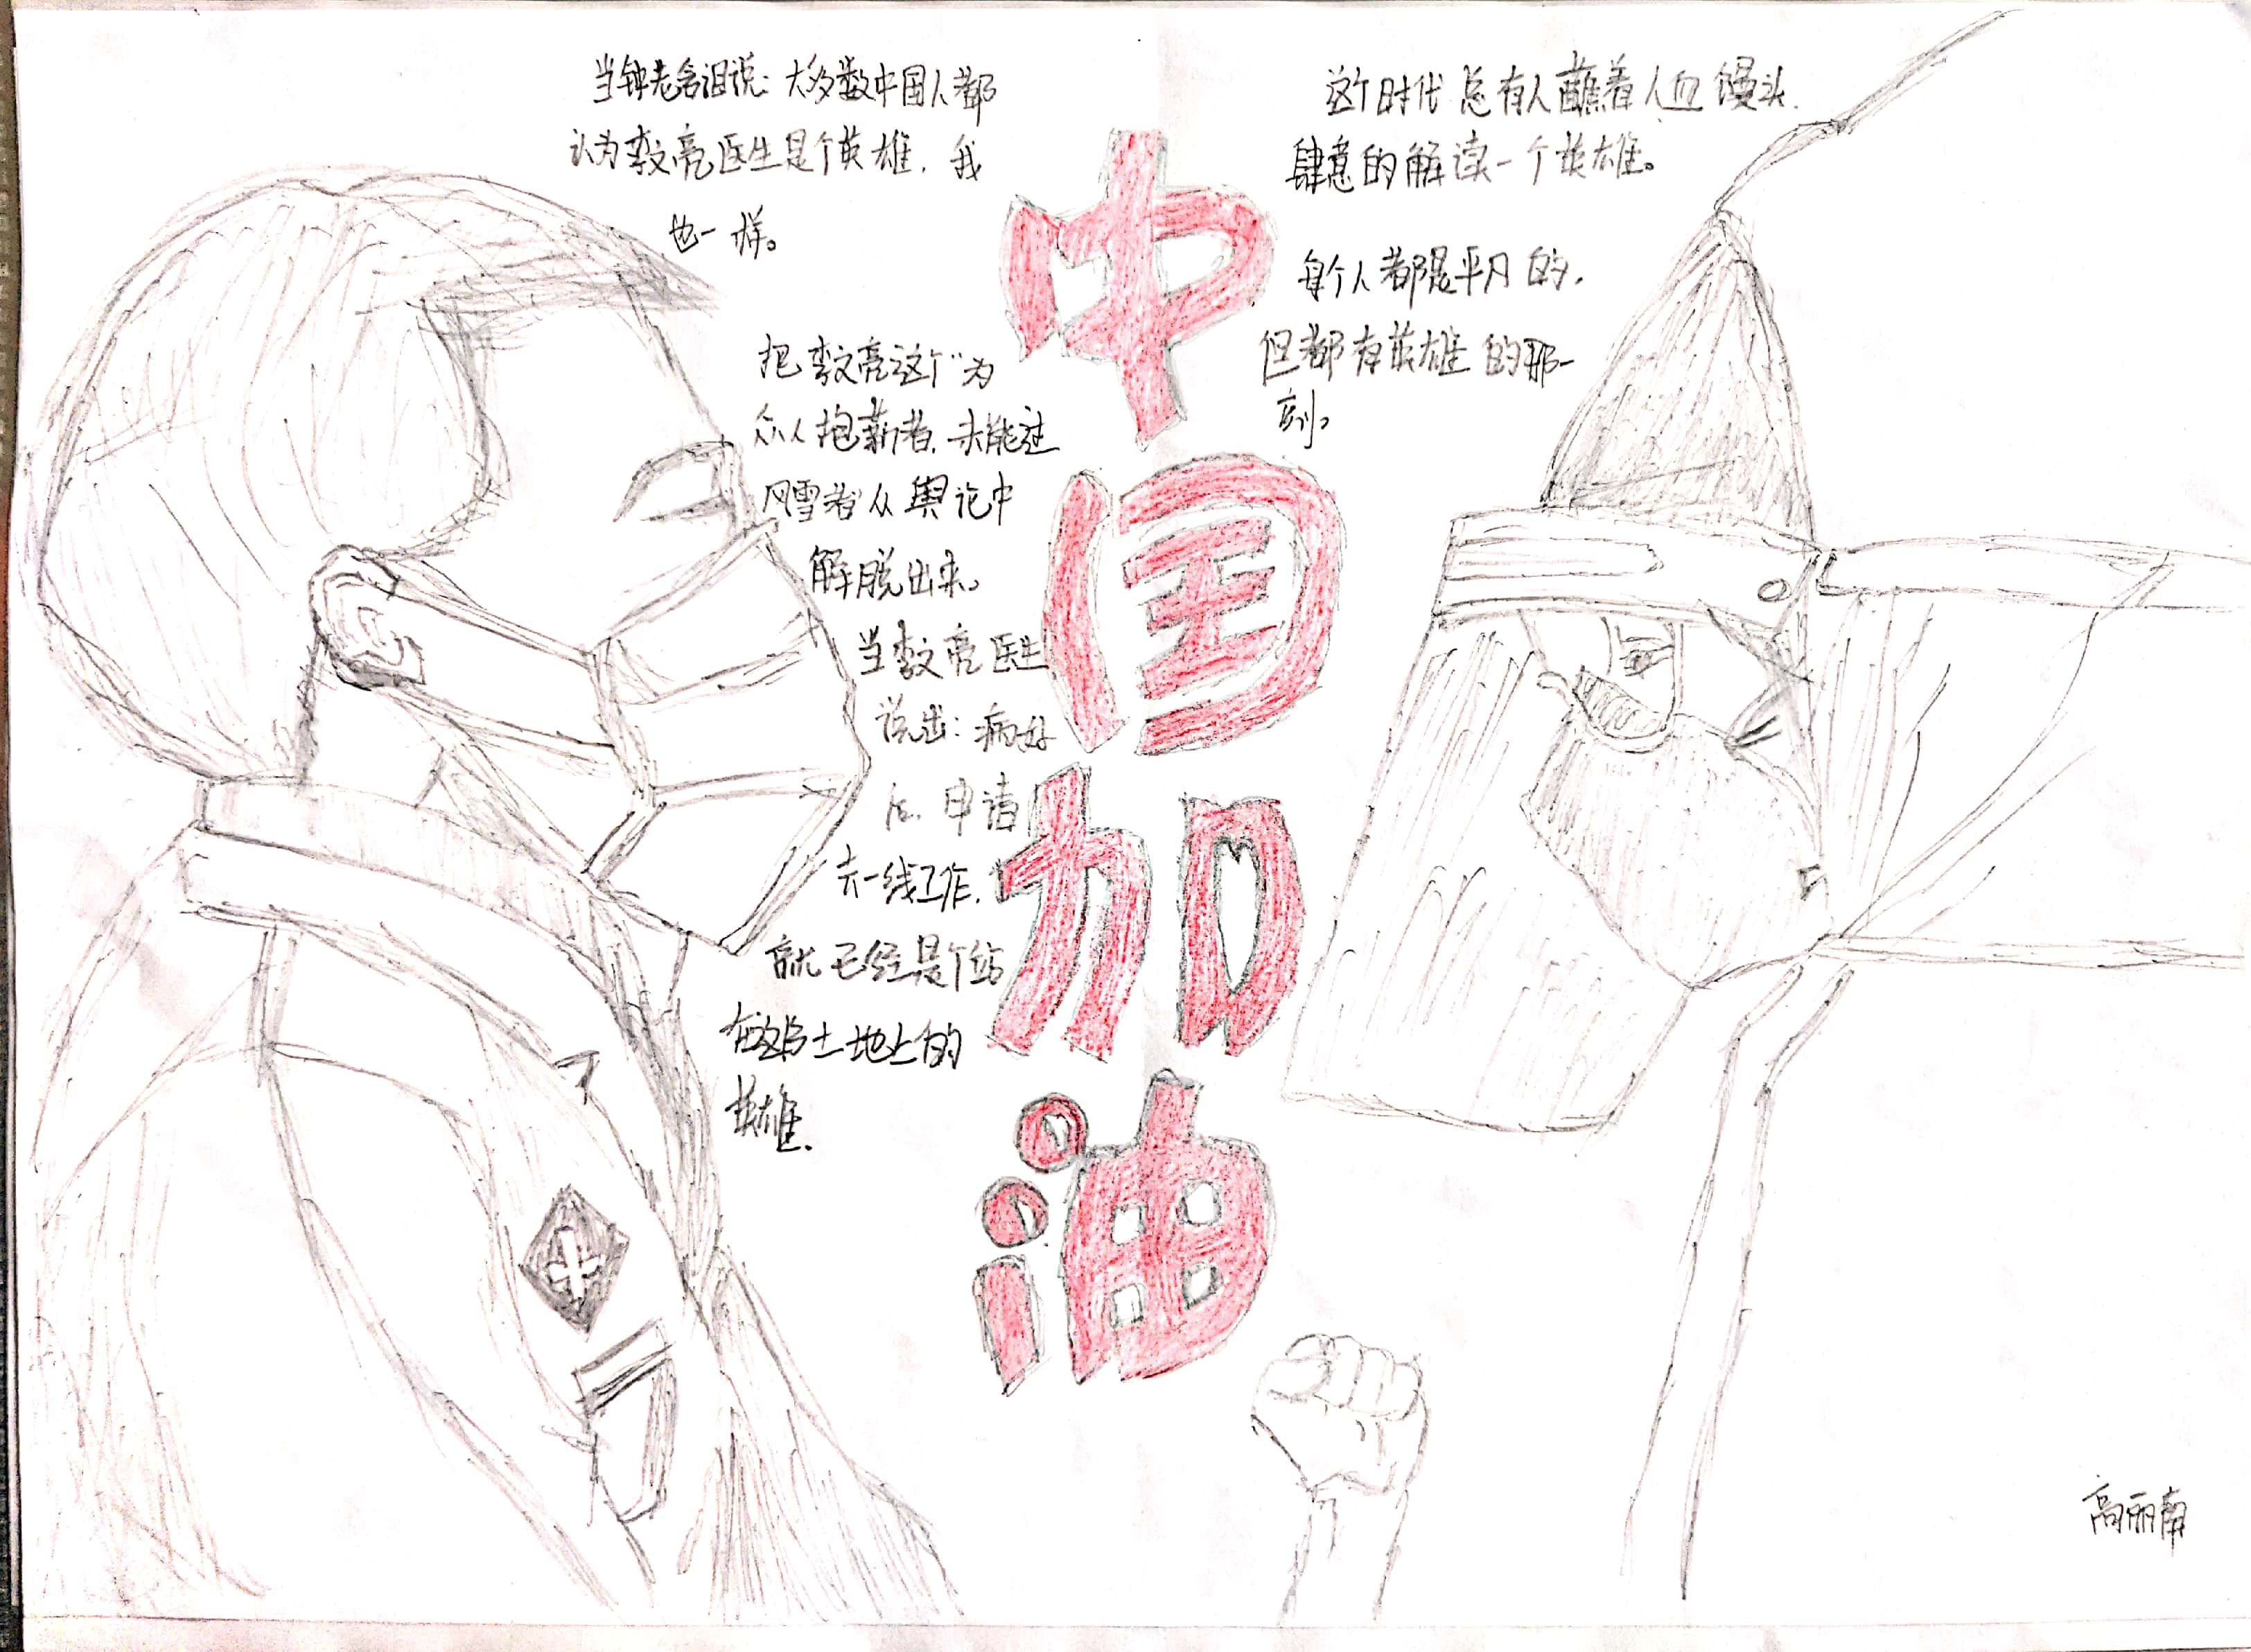 当钟老含泪说：大多数中国人都
认为李文亮医生是个英雄，我
也一样。
把李文亮这个“为
众人抱薪者，未能过
风雪者”从舆论中
解脱出来。
当李文亮医生
说出：病好
后，申请
去一线工作，
就已经是个站
在这片土地上的
英雄．
中
国
加
油
这个时代总有人蘸着人血馒头，
肆意的解读一个英雄。
每个人都是平凡的，
但都有英雄的那一
刻。
高丽南